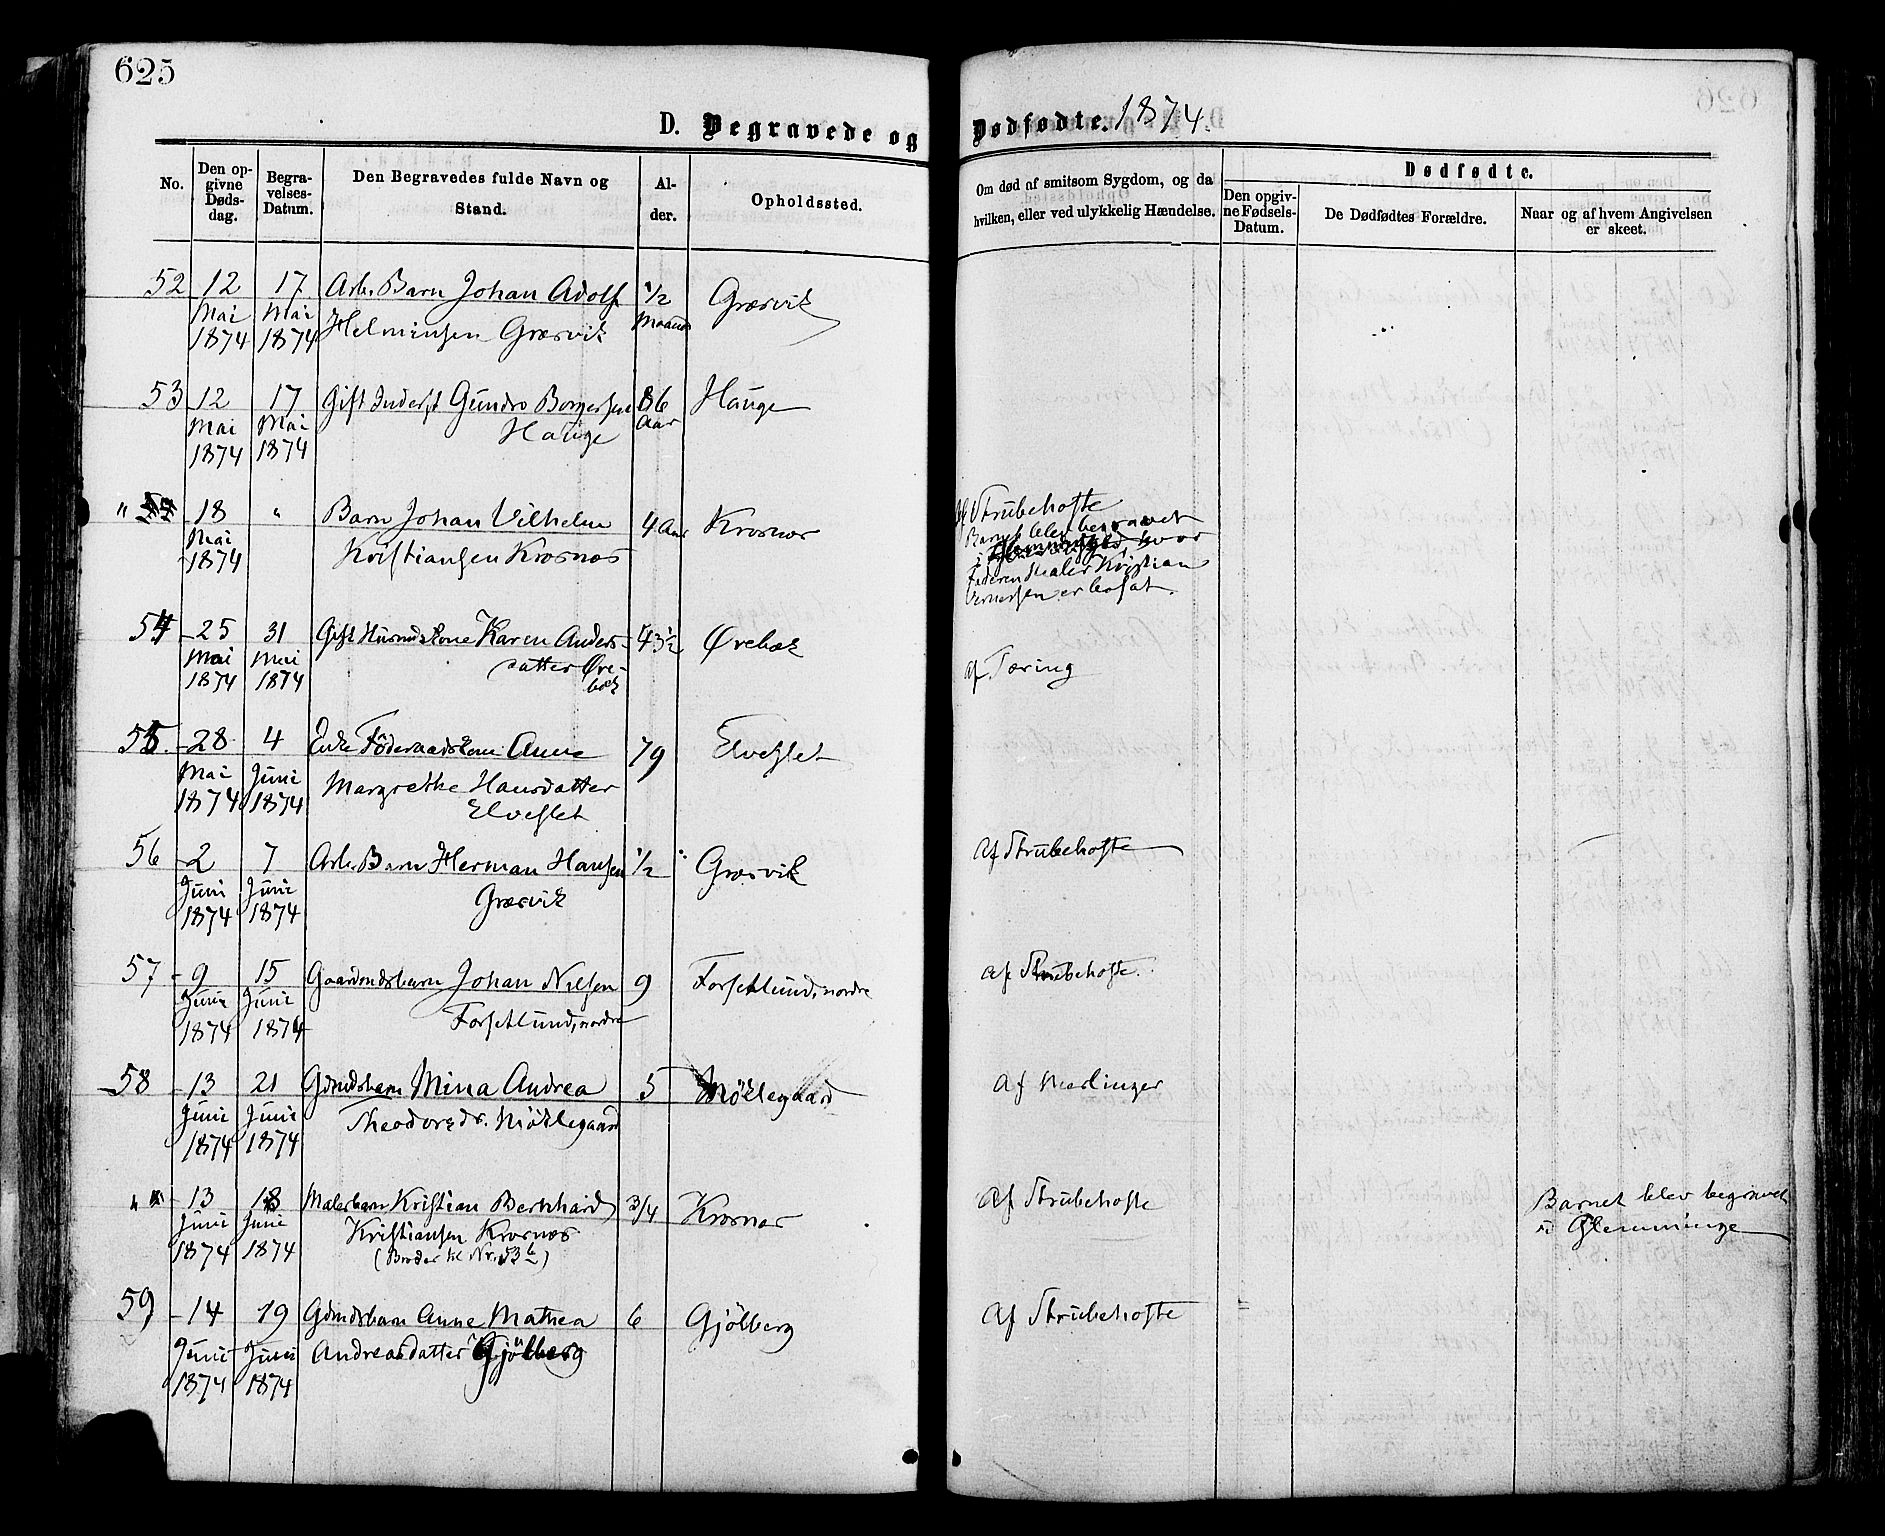 625
D. Begravede og Dødfødte. 1874.
No.
Den opgivne Dødsdag.
Begravelses-Datum.
Den Begravedes fulde Navn og Stand.
Alder.
Opholdssted.
Om død af smitsom Sygdom, og da hvilken, eller ved ulykkelig Hændelse.
Dødfødte.
Den opgivne Fødsels-Datum.
De Dødfødtes Forældre.
Naar og af hvem Angivelsen er skeet.
52 12 17 Arb. Barn Johan Adolf 1/2 Græsvik
Mai Mai Helminsen Græsvik Maaned
1874 1874
53 12 17 Gift Inderst Gundro Borgersen 86 Hauge
Mai Mai Hauge Aar
1874 1874
" 18 " Barn Johan Vilhelm 4 Aar Krosnæs Af Strubehoste
Mai Kristiansen Krosnæs Barnet blev begravet
1874 i hvor
Faderen Maler Kristian
er bosat.
54 25 31 Gift Husmdskone Karen Anders- 43 1/2 Ørebæk
Mai Mai datter Øre- af Tæring
1874 1874 bæk
55. 28 4 Enke Föderaadskone Anne 79 Elveslet
Mai Juni Margrethe Hansdatter
1874 1874 Elveslet
56 2 7 Arb. Barn Herman Hansen 1/2 Græsvik Af Strubehoste
Juni Juni Græsvik
1874 1874
57 9 15 Gaardmdsbarn Johan Nilsen 9 Forsetlund, nordre af Strubehoste.
Juni Juni Forsetlund, nordre
1874 1874
58 13 21 Gdmdsbarn Mina Andrea 5 Möklegaard Af Meslinger
Juni Juni Theodorsdr. Möklegaard
1874 1874
" 13 18 Malerbarn Kristian Bernhard 3/4 Krosnæs Af Strubehoste Barnet blev begravet
Juni Juni Kristiansen Krosnæs i Glemminge
1874 1874 (Broder til Nr. 53 b)
59 14 19 Gdmdsbarn Anne Mathea 6 Gjölberg Af Strubehoste
Juni Juni Andreasdatter Gjölberg
1874 1874